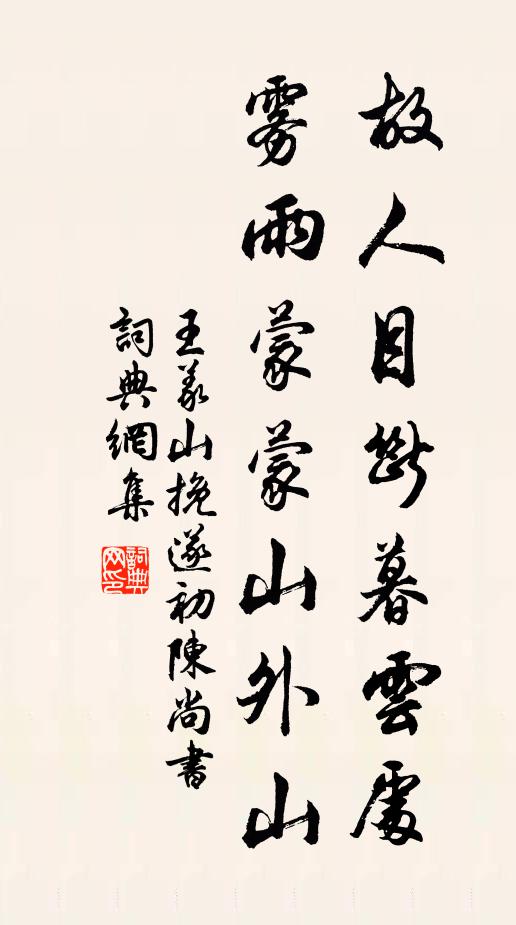 故人目斷暮雲處
雾雨蒙蒙山外山
王義山挽遂初陳尚書
詞典網集
詞典网印